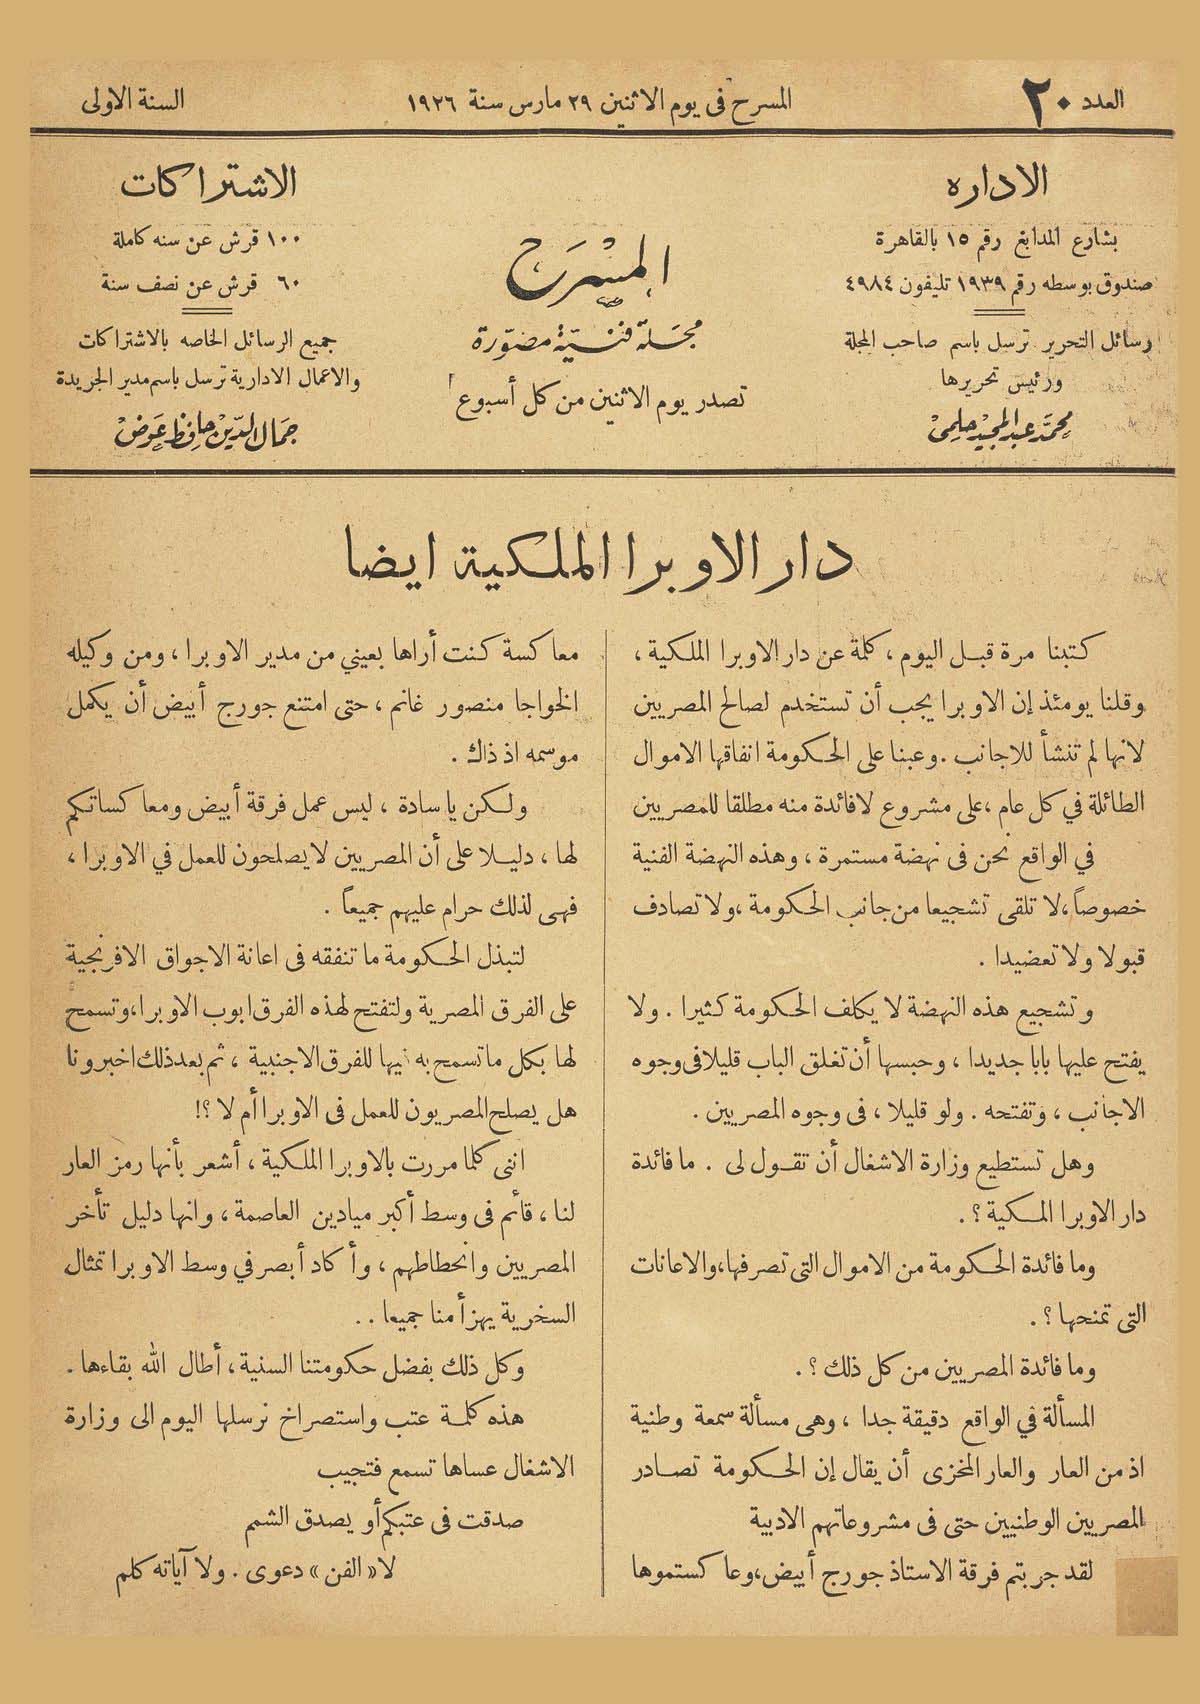 العدد ٢٠
المسرح فى يوم الاثنين ٢٩ مارس سنة ١٩٢٦
السنة الاولى
الاداره
بشارع المدابغ رقم ١٥ بالقاهرة
صندوق بوسطه رقم ١٩٣٩ تليفون ٤٩٨٤
رسائل التحرير ترسل باسم صاحب المجلة
ورئيس تحريرها
محمد عبد المجيد حلمى
المسرح
مجلة فنية مصورة
تصدر يوم الاثنين من كل أسبوع
الاشتراكات
١٠٠ قرش عن سنه كاملة
٦٠ قرش عن نصف سنة
جميع الرسائل الخاصه بالاشتراكات
والاعمال الادارية ترسل باسم مدير الجريدة
جمال الدين حافظ عوض
دار الاوبرا الملكية ايضا
كتبنا مرة قبل اليوم ، كلمة عن دار الاوبرا الملكية ،
وقلنا يومئذ إن الاوبرا يجب أن تستخدم لصالح المصريين
لانها لم تنشأ للاجانب . وعبنا على الحكومة انفاقها الاموال
الطائلة في كل عام ، على مشروع لا فائدة منه مطلقا للمصريين
في الواقع نحن فى نهضة مستمرة ، وهذه النهضة الفنية
خصوصاً ، لا تلقى تشجيعا من جانب الحكومة ، ولا تصادف
قبولا ولا تعضيدا .
وتشجيع هذه النهضة لا يكلف الحكومة كثيرا . ولا
يفتح عليها بابا جديدا ، وحبسها أن تغلق الباب قليلا فى وجوه
الاجانب ، وتفتحه . ولو قليلا ، فى وجوه المصريين .
وهل تستطيع وزارة الاشغال أن تقول لى . ما فائدة
دار الاوبرا المكية ؟ .
وما فائدة الحكومة من الاموال التى تصرفها ، والاعانات
التى تمنحها ؟ .
وما فائدة المصريين من كل ذلك ؟ .
المسألة في الواقع دقيقة جدا ، وهى مسألة سمعة وطنية
اذ من العار والعار المخزى أن يقال إن الحكومة تصادر
المصريين الوطنيين حتى فى مشروعاتهم الادبية
لقد جربتم فرقة الاستاذ جورج أبيض ، وعاكستموها
معاكسة كنت أراها بعيني من مدير الاوبرا ، ومن وكيله
الخواجا منصور غانم ، حتى امتنع جورج أبيض أن يكمل
موسمه اذ ذاك .
ولكن يا سادة ، ليس عمل فرقة أبيض ومعاكساتكم
لها ، دليلا على أن المصريين لا يصلحون للعمل في الاوبرا ،
فهى لذلك حرام عليهم جميعاً .
لتبذل الحكومة ما تنفقه فى اعانة الاجواق الافرنجية
على الفرق المصرية ولتفتح لهذه الفرق ابوب الاوبرا ، وتسمح
لها بكل ما تسمح به فيها للفرق الاجنبية ، ثم بعد ذلك اخبرونا
هل يصلح المصريون للعمل فى الاوبرا أم لا ؟!
اننى كلما مررت بالاوبرا الملكية ، أشعر بأنها رمز العار
لنا ، قائم فى وسط أكبر ميادين العاصمة ، وانها دليل تأخر
المصريين وانحطاطهم ، وأكاد أبصر في وسط الاوبرا تمثال
السخرية يهزأ منا جميعا . .
وكل ذلك بفضل حكومتنا السنية ، أطال الله بقاءها .
هذه كلمة عتب واستصراخ نرسلها اليوم الى وزارة
الاشغال عساها تسمع فتجيب
صدقت فى عتبكم أو يصدق الشمم
لا « الفن » دعوى . ولا آياته كلم